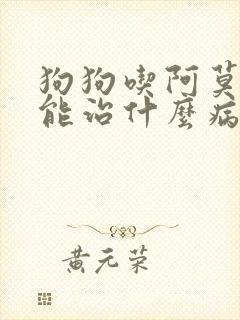 狗狗喫阿莫
能治什麼病
黄元荣